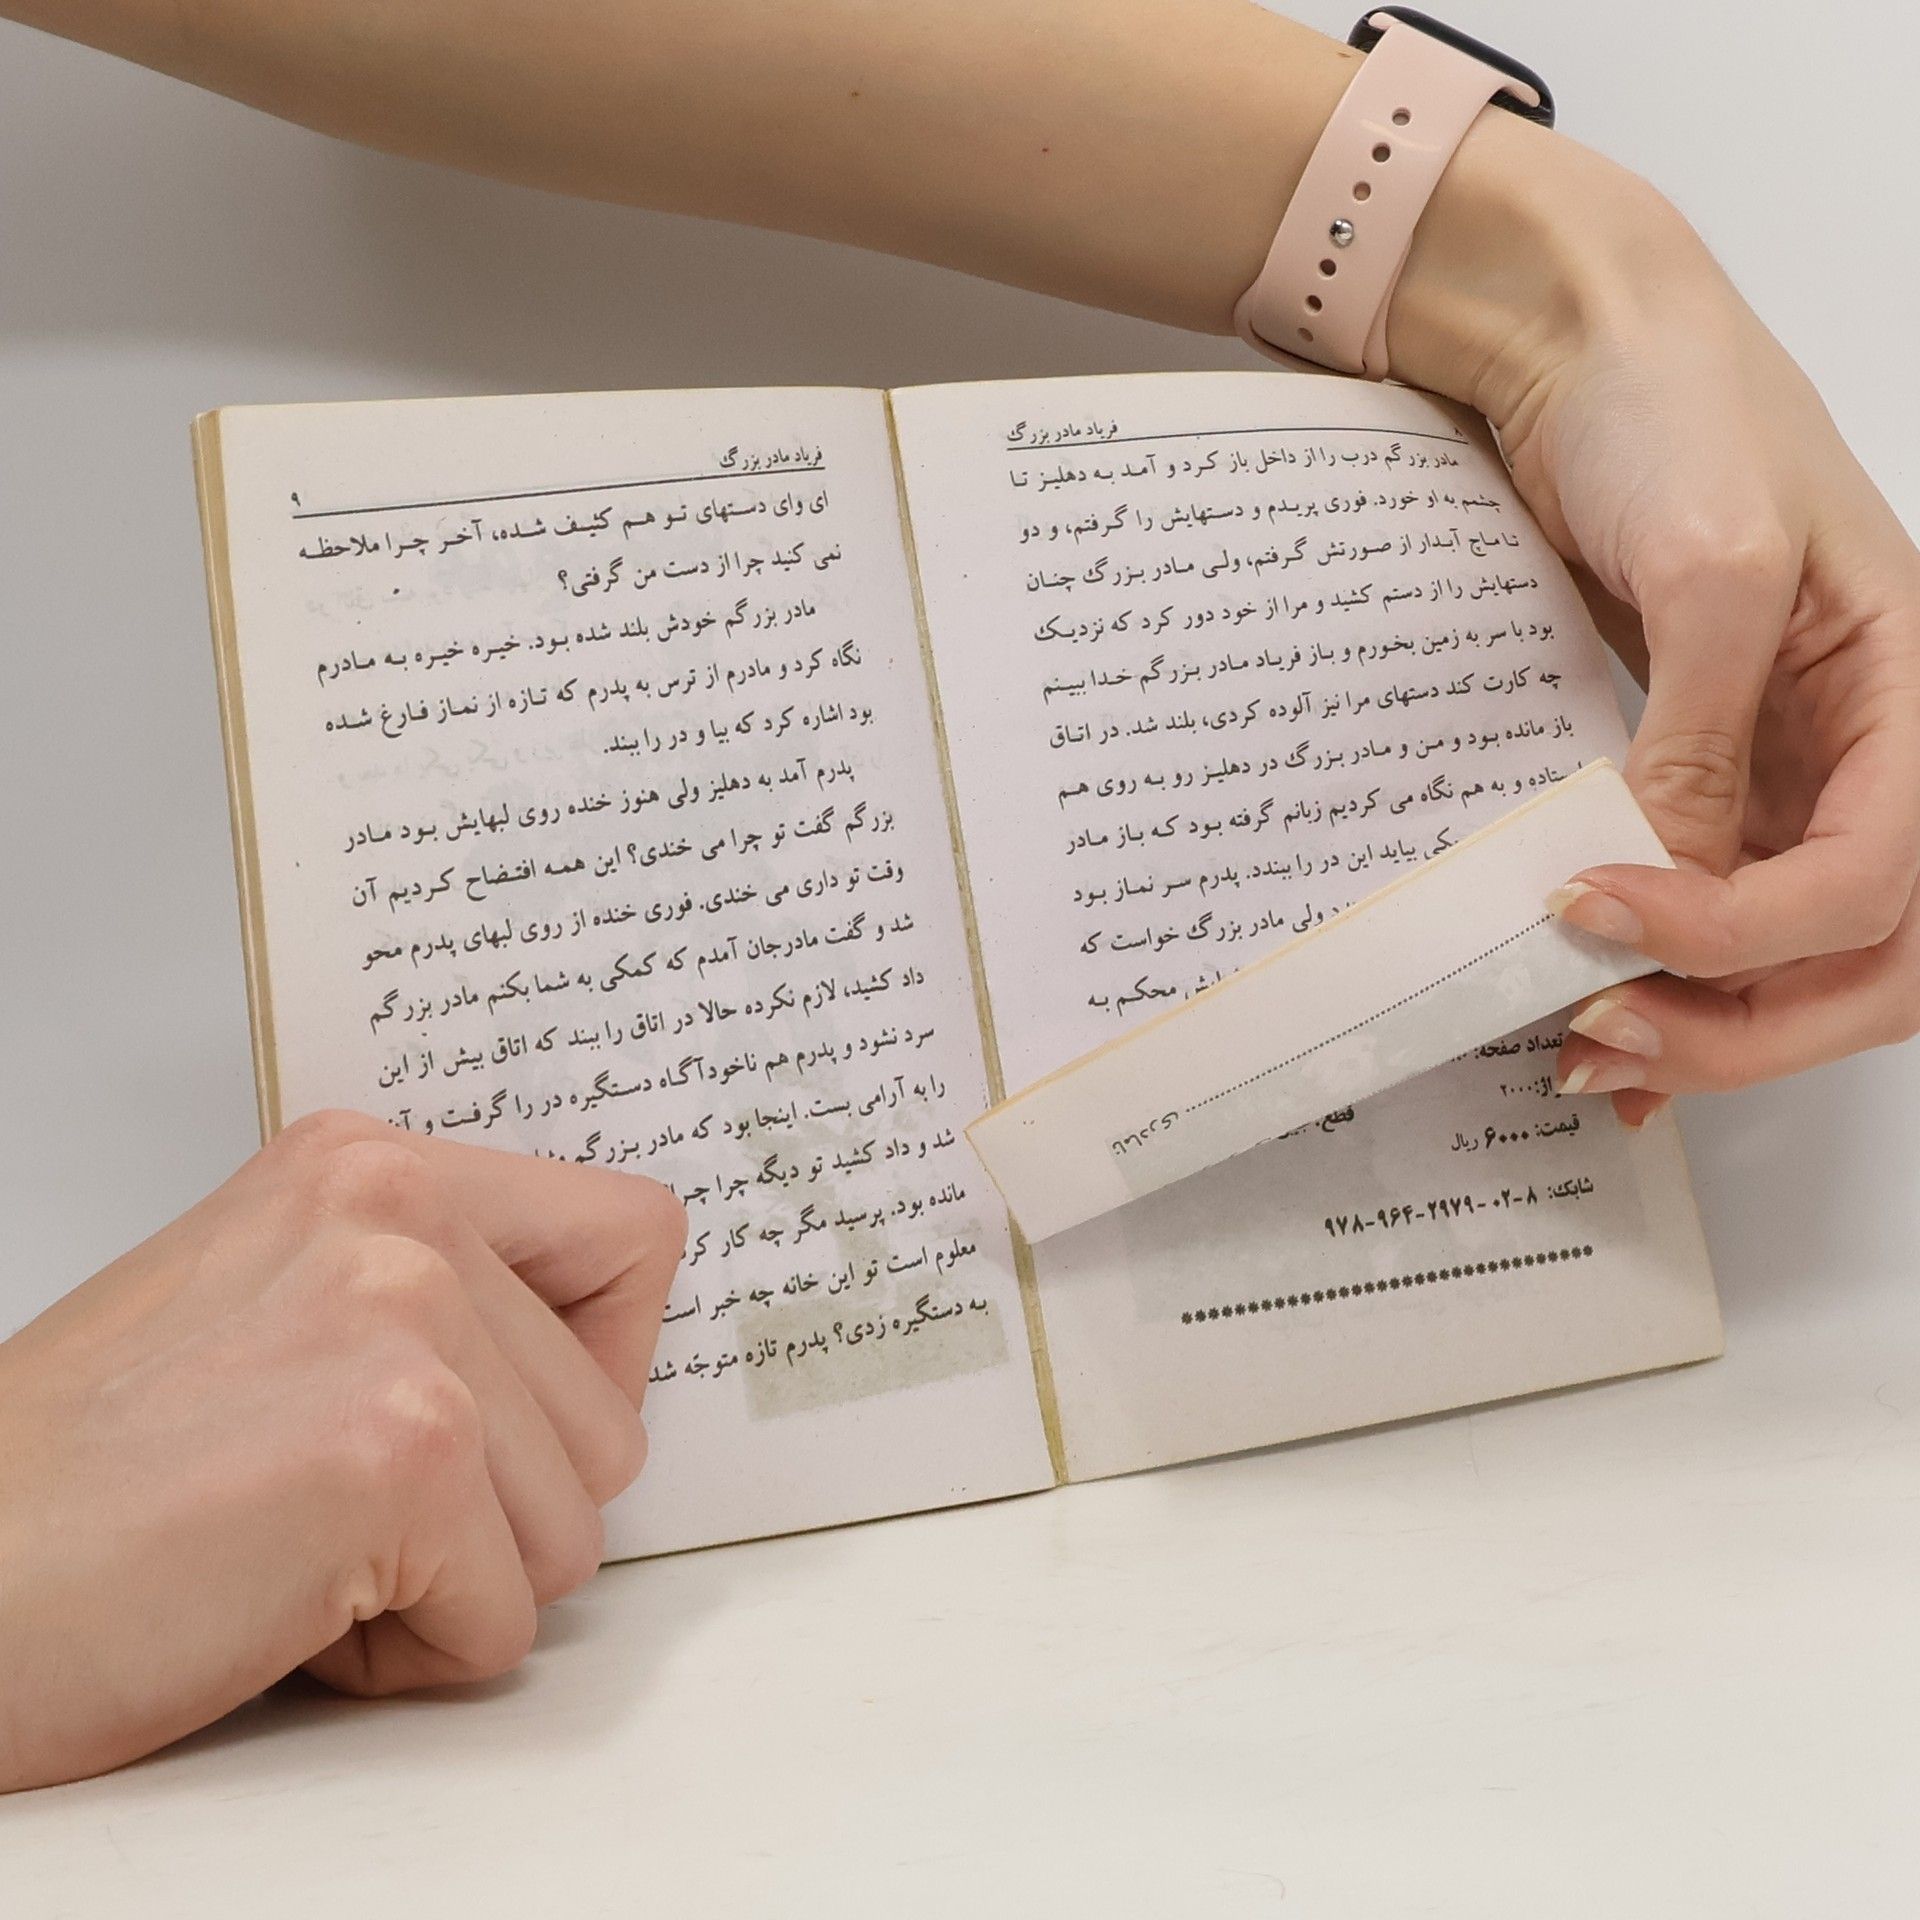 فریاد مادر بزرگ
۸
مادر بزرگم درب را از داخل باز کرد و آمد به دهلیز تا
چشمم به او خورد. فوری پریدم و دستهایش را گرفتم، و دو
تا ماچ آبدار از صورتش گرفتم، ولی مادر بزرگ چنان
دستهایش را از دستم کشید و مرا از خود دور کرد که نزدیک
بود با سر به زمین بخورم و باز فریاد مادر بزرگم خدا ببینم
چه کارت کند دستهای مرا نیز آلوده کردی، بلند شد. در اتاق
باز مانده بود و من و مادر بزرگ در دهلیز رو به روی هم
و به هم نگاه می کردیم زبانم گرفته بود که باز مادر
بیاید این در را ببندد. پدرم سر نماز بود
ولی مادر بزرگ خواست که
محکم به
تعداد صفحه:
قیمت: ۶۰۰۰ ریال
شابک: ۸-۰۲-۲۹۷۹-۹۶۴-۹۷۸
********************************
فریاد مادر بزرگ
۹
ای وای دستهای تو هم کثیف شده، آخر چرا ملاحظه
نمی کنید چرا از دست من گرفتی؟
مادر بزرگم خودش بلند شده بود. خیره خیره به مادرم
نگاه کرد و مادرم از ترس به پدرم که تازه از نماز فارغ شده
بود اشاره کرد که بیا و در را ببند.
پدرم آمد به دهلیز ولی هنوز خنده روی لبهایش بود مادر
بزرگم گفت تو چرا می خندی؟ این همه افتضاح کردیم آن
وقت تو داری می خندی. فوری خنده از روی لبهای پدرم محو
شد و گفت مادرجان آمدم که کمکی به شما بکنم مادر بزرگم
داد کشید، لازم نکرده حالا در اتاق را ببند که اتاق بیش از این
سرد نشود و پدرم هم ناخودآگاه دستگیره در را گرفت و
را به آرامی بست. اینجا بود که مادر بزرگم
شد و داد کشید تو دیگه چرا
مانده بود. پرسید مگر چه کار
معلوم است تو این خانه چه خبر است
به دستگیره زدی؟ پدرم تازه متوجّه شد